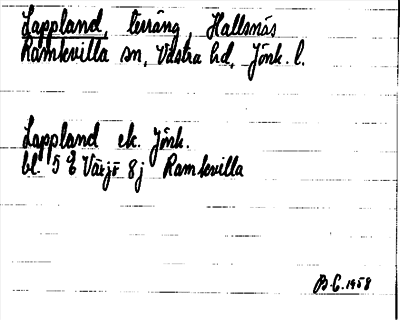 Lappland, terräng, Hallsnäs
Ramkvilla sn, Västra hd, Jönk. l.
Lappland ek. Jönk.
bl. 5 E Växjö 8j Ramkvilla
B.C. 1958